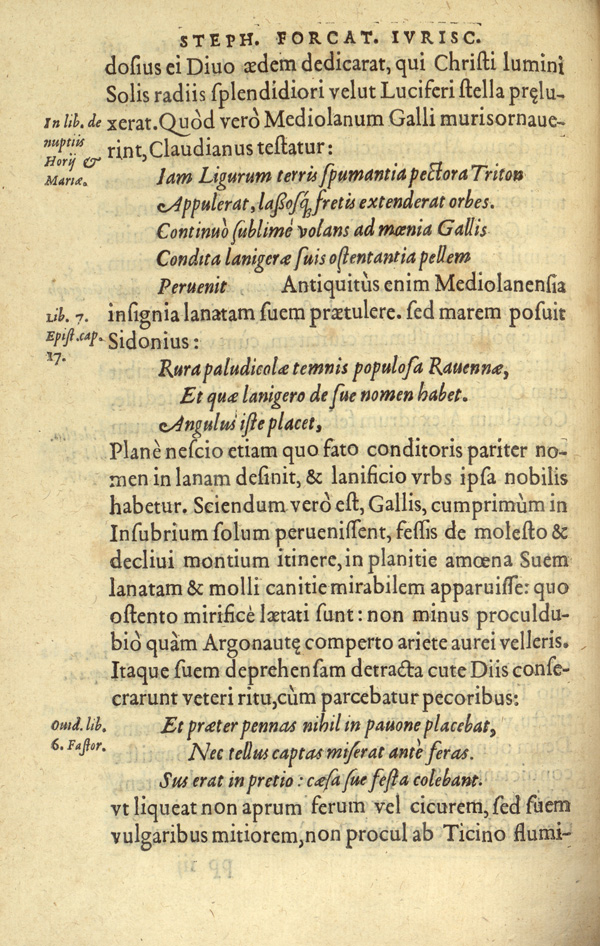 STEPH. FORCAT. IVRISC.
dosius ei Diuo ædem dedicarat, qui Christi lumini
Solis radiis splendidiori velut Luciferi stella pręlu-
In lib. de
nuptiis
Horij &
Mariæ.
xerat. Quòd verò Mediolanum Galli muris ornaue-
rint, Claudianus testatur:
Iam Ligurum terris spumantia pectora Triton
Appulerat, lassosq; fretis extenderat orbes.
Continuò sublimè volans ad mœnia Gallis
Condita lanigeræ suis ostentantia pellem
Peruenit Antiquitùs enim Mediolanensia
Lib. 7.
Epist. cap.
17.
insignia lanatam suem prætulere. sed marem posuit
Sidonius:
Rura paludicolæ temnis populosa Rauennæ,
Et quæ lanigero de sue nomen habet.
Angulus iste placet,
Planè nescio etiam quo fato conditoris pariter no-
men in lanam desinit, & lanificio vrbs ipsa nobilis
habetur. Sciendum verò est, Gallis, cumprimùm in
Insubrium solum peruenissent, fessis de molesto &
decliui montium itinere, in planitie amœna Suem
lanatam & molli canitie mirabilem apparuisse: quo
ostento mirificè lætati sunt: non minus proculdu-
biò quàm Argonautę comperto ariete aurei velleris.
Itaque suem deprehensam detracta cute Diis conse-
crarunt veteri ritu, cùm parcebatur pecoribus:
Ouid. lib.
6. Fastor.
Et præter pennas nihil in pauone placebat,
Nec tellus captas miserat antè feras.
Sus erat in pretio: cæsa sue festa colebant.
vt liqueat non aprum ferum vel cicurem, sed suem
vulgaribus mitiorem, non procul ab Ticino flumi-